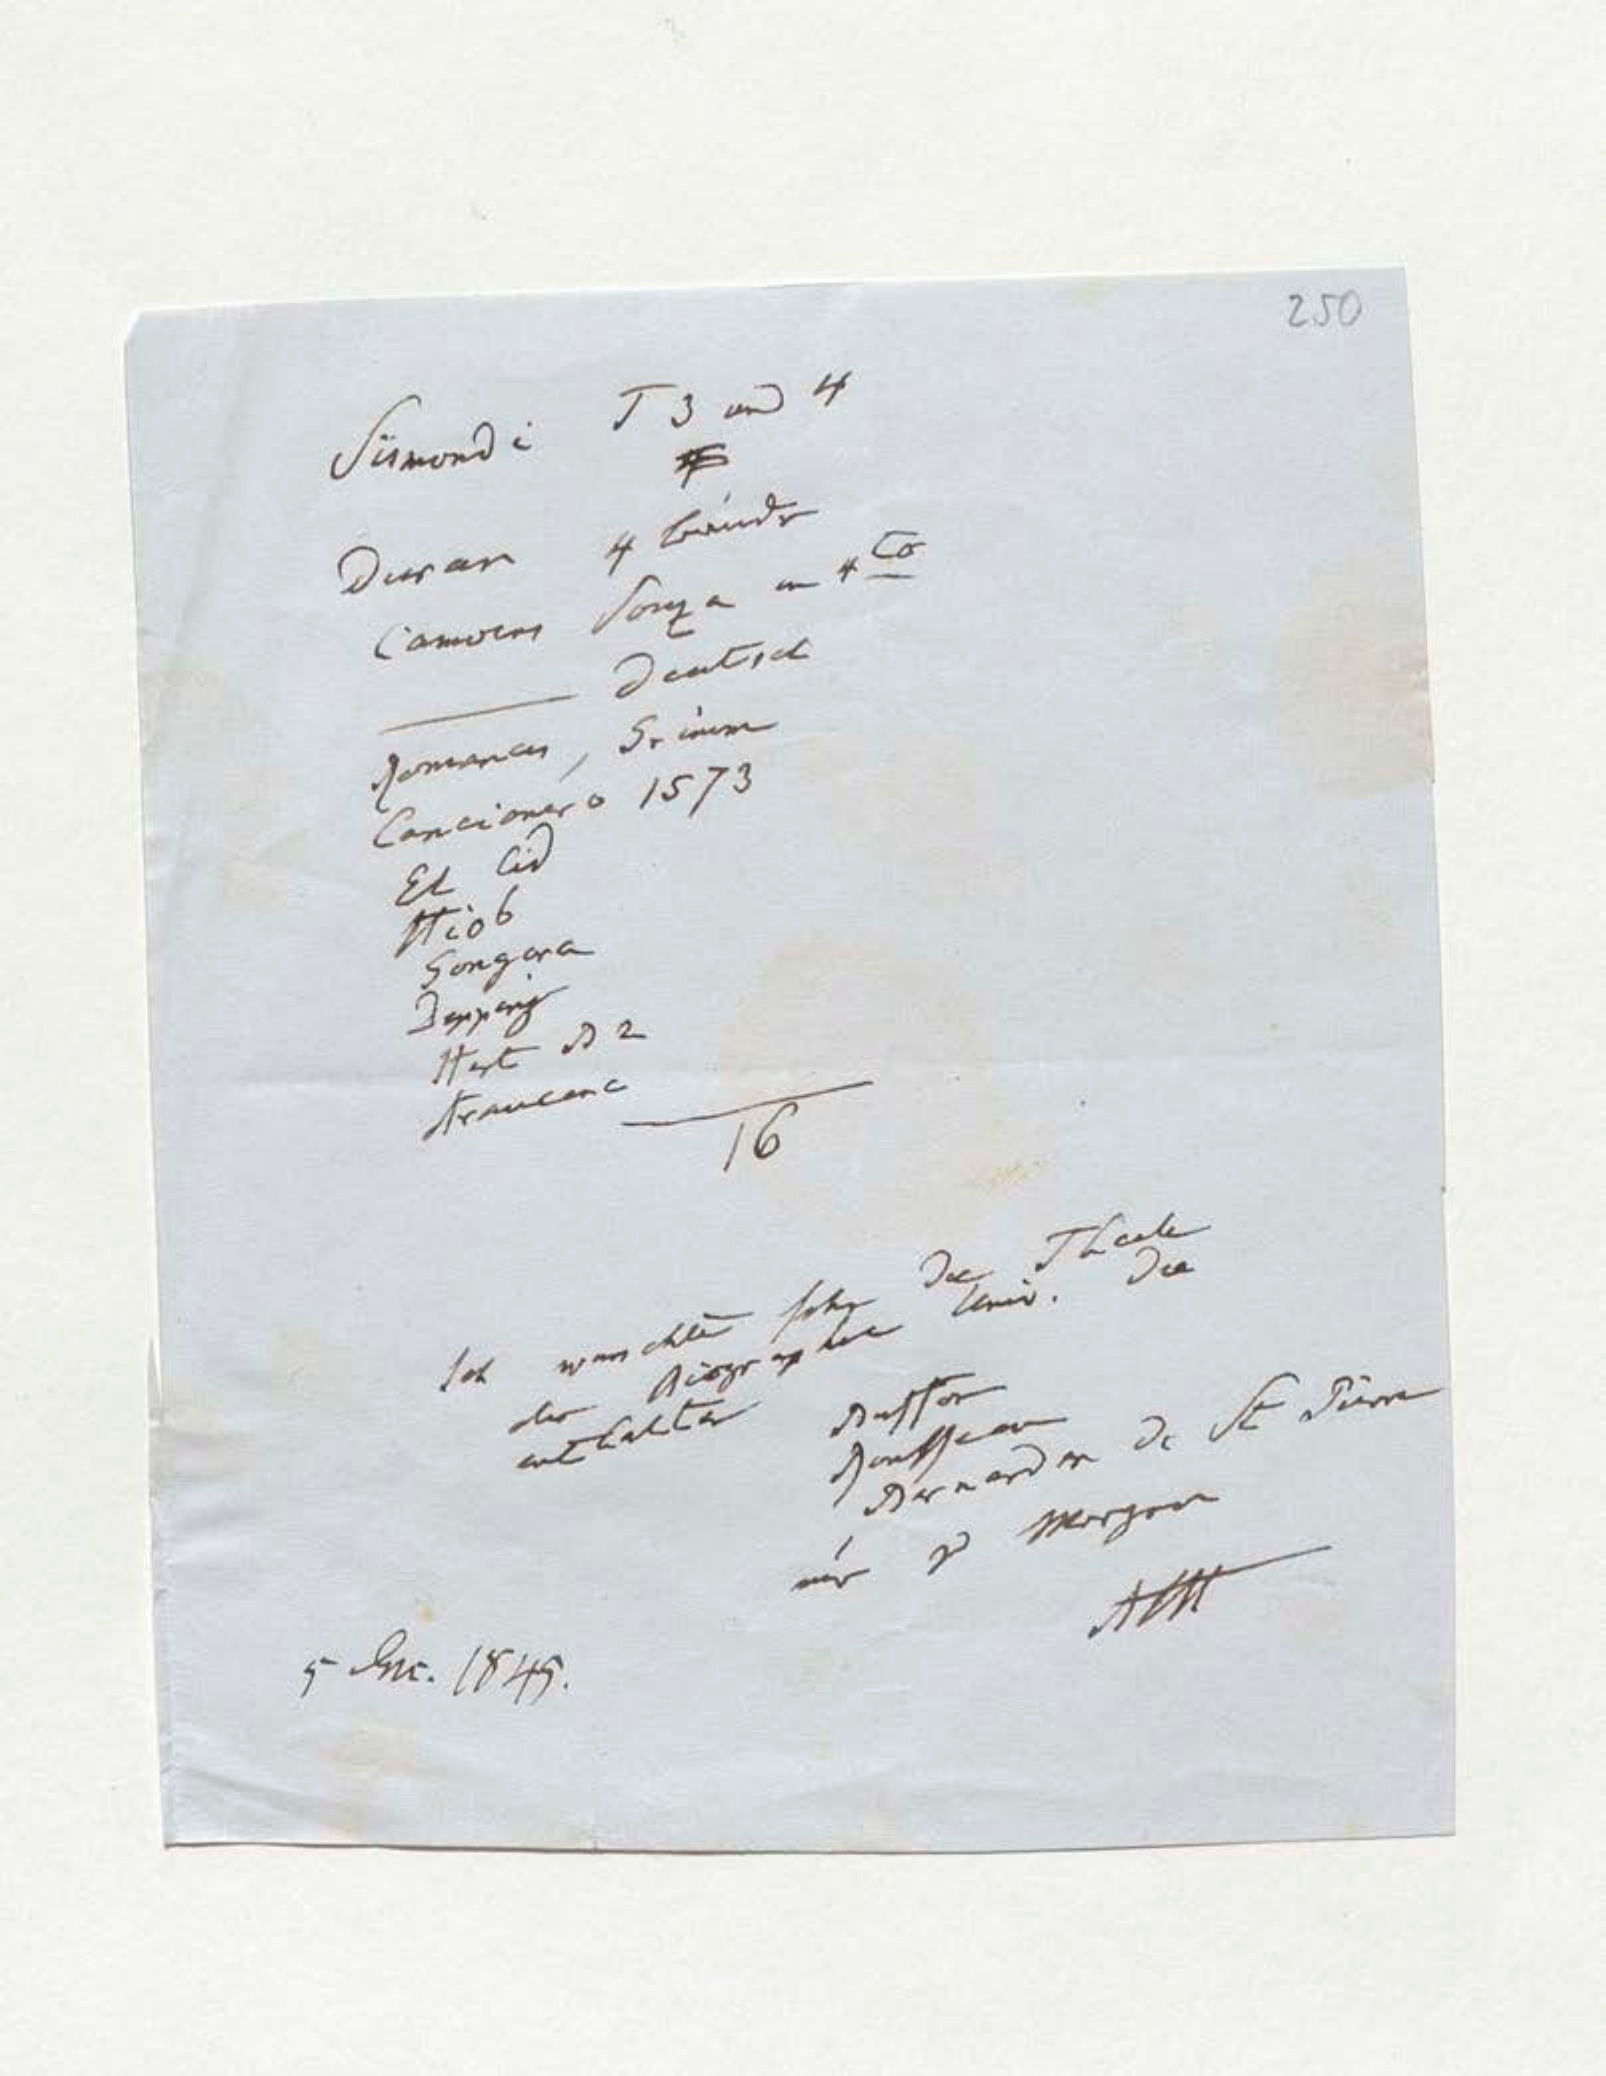 250
Sismondi T 3 und 4
Duran 4 Bände
Camoens Souza in 4to
Deutsch
Romances, Grimm
Cancionero 1573
El Cid
Hiob
Gongora
Depping
Hert B 2
Araucana
16
Ich wünschte sehr die Theile
der Biographie Univ. die
enthalten Buffon
Rousseau
Bernardin de St Pierre
mir zu Morgen
AHt
5 Dec. 1845.